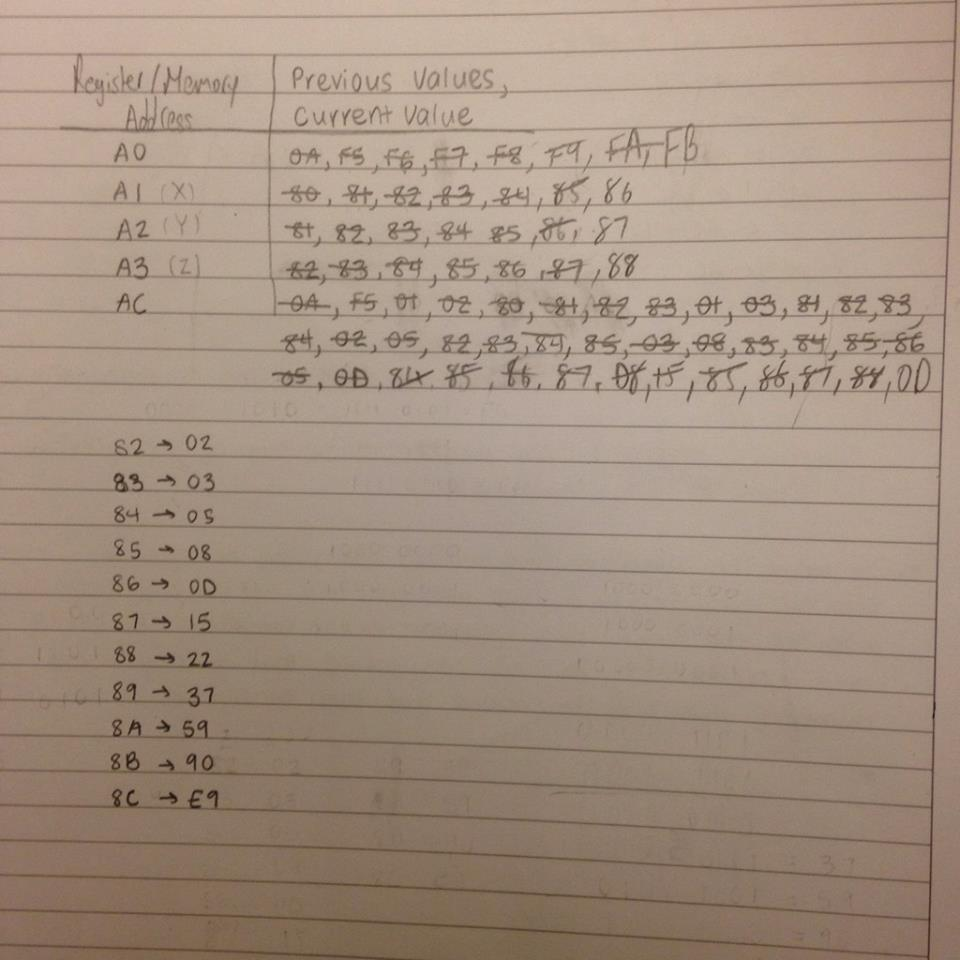 Register/Memory Address | Previous Values, Current Value
A0 | 0A, F5, F6, F7, F8, F9, FA, FB
A1 (X) | 80, 81, 82, 83, 84, 85, 86
A2 (Y) | 81, 82, 83, 84 85, 86, 87
A3 (Z) | 82, 83, 84, 85, 86, 87, 88
AC | 0A, F5, 01, 02, 80, 81, 82, 83, 01, 03, 81, 82, 83,
84, 02, 05, 82, 83, 84, 85, 03, 08, 83, 84, 85, 86
05, 0D, 84, 85, 86, 87, 08, 15, 85, 86, 87, 88, 0D
82 → 02
83 → 03
84 → 05
85 → 08
86 → 0D
87 → 15
88 → 22
89 → 37
8A → 59
8B → 90
8C → E9